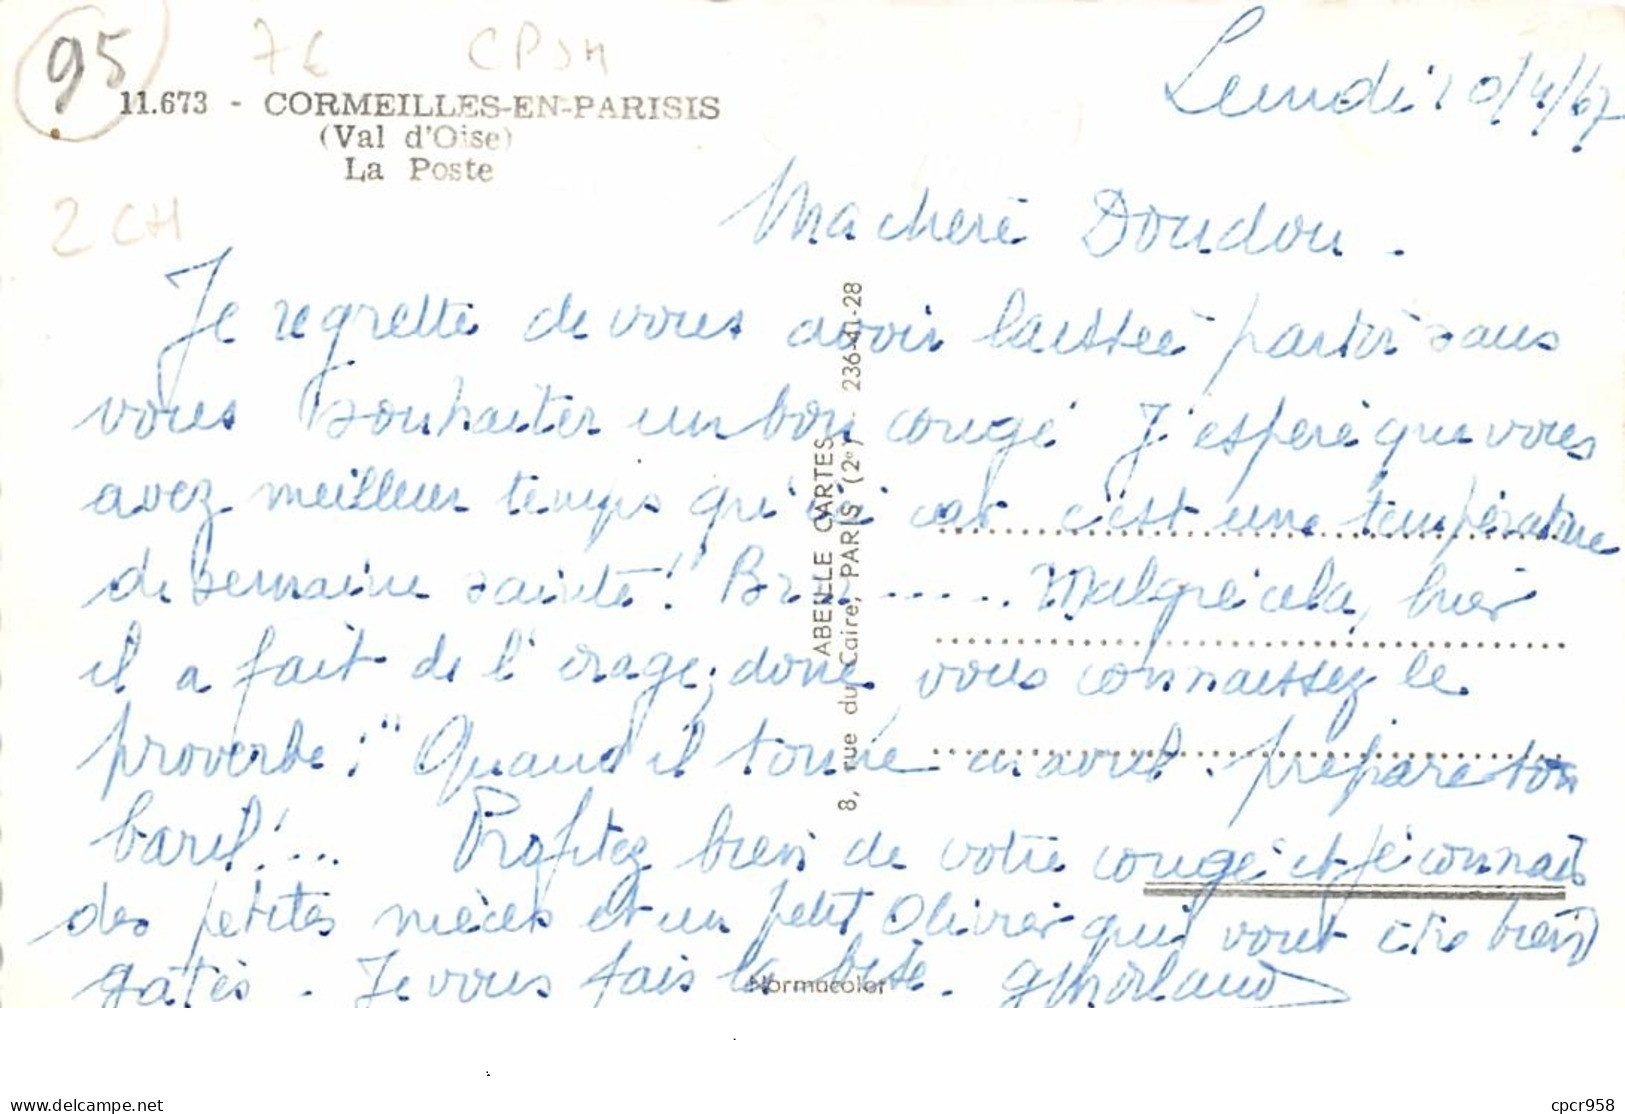 95
7€ CPSM
11.673 - CORMEILLES-EN-PARISIS
(Val d'Oise)
La Poste
2 CH
Lundi 10/4/67
Ma chere Doudou.
Je regrette de vous avoir laissée partir sans
vous souhaiter un bon congé J'espere que vous
avez meilleur temps qu'ici car c'est une température
de semaine sainte! Brr...... Malgré cela, hier
il a fait de l'orage; donc vous connaissez le
proverbe: "Quand il tonne en avril prépare ton
baril!... Profitez bien de votre congé et je connais
des petites nièces et un petit Olivier qui vont être bien
gatés. Je vous fais la bise.
ABEILLE CARTES
8, rue du Caire, PARIS (2e) 236-41-28
Normacolor
delcampe.net
cpcr958